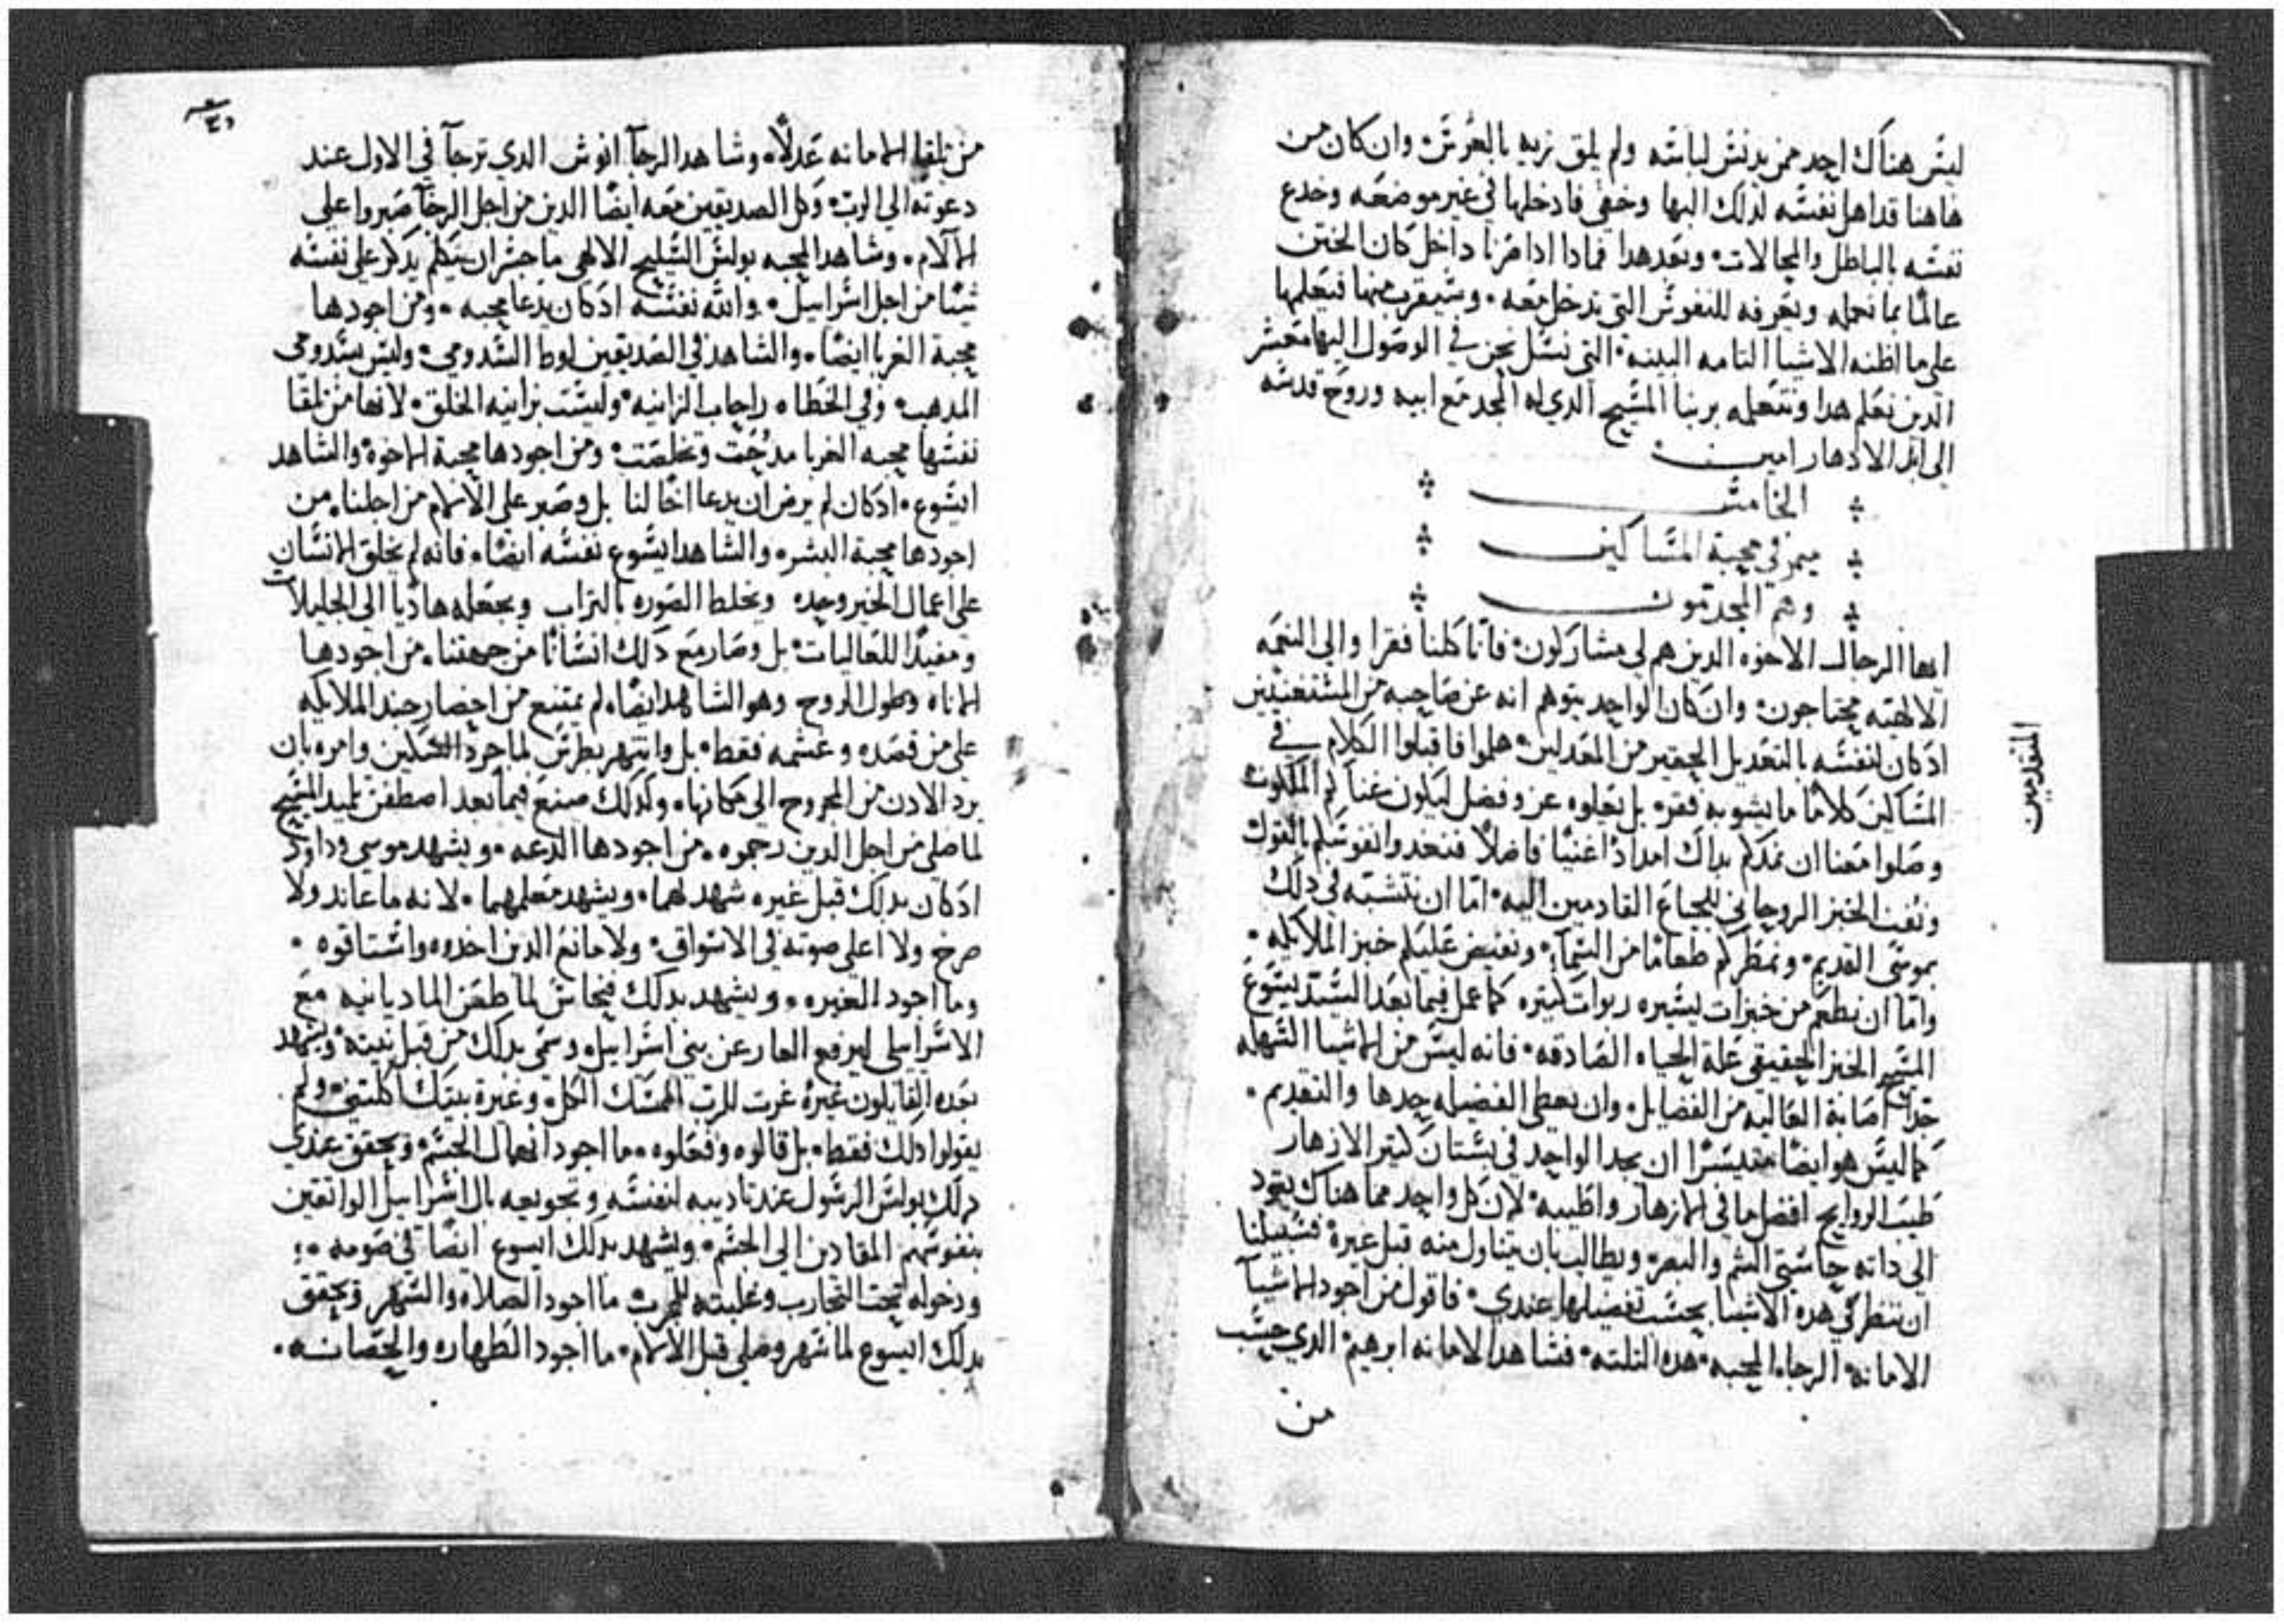 ليس هناك احد ممن يدنس لباسه ولم يلق بزيه بالعرس وان كان من
هاهنا قد اهل نفسه لذلك البها وخفي فادخلها في غير موضعه وخدع
نفسه بالباطل والمحالات وبعد هدا فمادا ادا صرنا داخل كان الختن
عالمًا بما نعمله ويعرفه للنفوس التي تدخل معه وسيقرب منها فيعلمها
على ما اظنه الاشيا التامه البينه التي نسل نحن في الوصول اليها معشر
الدين نعلم هدا ونتعلمه بربنا المسيح الدي له المجد مع ابيه وروح قدسه
الى ابد الادهار امين
الخامس
ميمر في محبة المساكين
وهم المجدمون
ايها الرجال الاخوه الدين هم لي مشاركون فانا كلنا فقرا والى النعمه
الالهيه محتاجون وان كان الواحد يتوهم انه عن صاحبه من المستغنيين
ادكان لنفسه بالتعديل الحقير من المعدلين هلموا فاقبلوا الكلام في
المساكين كلامًا ما يشوبه فقر بل يعلوه عز وفضل ليكون غناكم الملكوت
وصلوا معنا ان نمدكم بداك امدادًا غنيًا فاضلًا فنغدوا نفوسكم بالقول
ونفت الخبز الروحاني للجياع القادمين اليه امّا ان نتشبّه في دلك
بموسى القديم ونمطركم طعامًا من السما ونفيض عليكم خبز الملايكه
وامّا ان نطعم من خبزات يسيره ربوات كتيره كما عمل فيما بعد السيّد يسوع
المسيح الخبز الحقيقي علة الحياه الصادقه فانه ليس من الاشيا السهله
جدًا اصابة الغاليه من الفضايل وان يعطى الفضيله حدها والتقديم
كما ليس هو ايضًا متيسرًا ان يجد الواحد في بستان كتير الازهار
طيب الروايح افضل ما في الازهار واطيبه لان كل واحد مما هناك يقود
الى داته حاستي الشم والبصر ويطالب بان يتناول منه قبل غيره فسبيلنا
ان ننظر في هده الاشيا بحسب تفضيلها عندي فاقول من اجود الاشيا
الامانه الرجا المحبه هده التلته فشاهد الامانه ابرهيم الدي حسب
من
المتقدمين
من تلقا الامانه عدلًا وشاهد الرجا انوش الدي ترجا في الاول عند
دعوته الى الرب وكل الصديقين معه ايضًا الدين من اجل الرجا صبروا على
الالام وشاهد المحبه بولس السليح الالهي ما جسر ان يتكلم يدكر على نفسه
شيًا من اجل اسراييل والله نفسه ادكان يدعا محبه ومن اجودها
محبة الغربا ايضًا والشاهد في الصديقين لوط السدومي وليس سدومي
المدهب وفي الخطاه راحاب الزانيه وليست بزانيه الخلق لانها من تلقا
نفسها محبه الغربا مدحت وتخلصت ومن اجودها محبة الاخوه والشاهد
ايسوع ادكان لم يرض ان يدعا اخًا لنا بل وصبر على الالام من اجلنا من
اجودها محبة البشر والشاهد ايسوع نفسه ايضًا فانه لم يخلق الانسان
على اعمال الخير وحده ويخلط الصوره بالتراب ويجعله هاديًا الى الجليلات
ومفيدًا للعاليات بل وصار مع دلك انسانًا من جهتنا من اجودها
الاناه وطول الروح وهو الشاهد ايضًا لم يمتنع من احضار جند الملايكه
على من قصده وغشمه فقط بل وانتهر بطرس لما جرد السكين وامره بان
يرد الادن من المجروح الى مكانها وكدلك صنع فيما بعد اصطفن تلميد المسيح
لما صلى من اجل الدين رجموه من اجودها الدعه ويشهد موسى وداود
ادكان بدلك قبل غيره شهد لهما ويشهد معلمهما لانه ما عاند ولا
صرخ ولا اعلى صوته في الاسواق ولا مانع الدين اخدوه واستاقوه
وما اجود الغيره ويشهد بدلك فنحاس لما طعن الماديانيه مع
الاسراييلي ليرفع العار عن بني اسراييل وسمى بدلك من قبل نيته ويشهد
بعده القايلون غيرة غرت للرب الممسك الكل وغيرة بيتك اكلتني ولم
يقولوا دلك فقط بل قالوه وفعلوه ما اجود انهمال الجسم ويحقق عندي
دلك بولس الرسول عند تاديبه لنفسه وتجويعه بال اسراييل الواتقين
بنفوسهم المقادين الى الجسم ويشهد بدلك ايسوع ايضًا في صومه
ودخوله تحت التجارب وغلبته للمجرب ما اجود الصلاه والسهر ويحقق
بدلك ايسوع لما سهر وصلى قبل الالام ما اجود الطهاره والحصانه